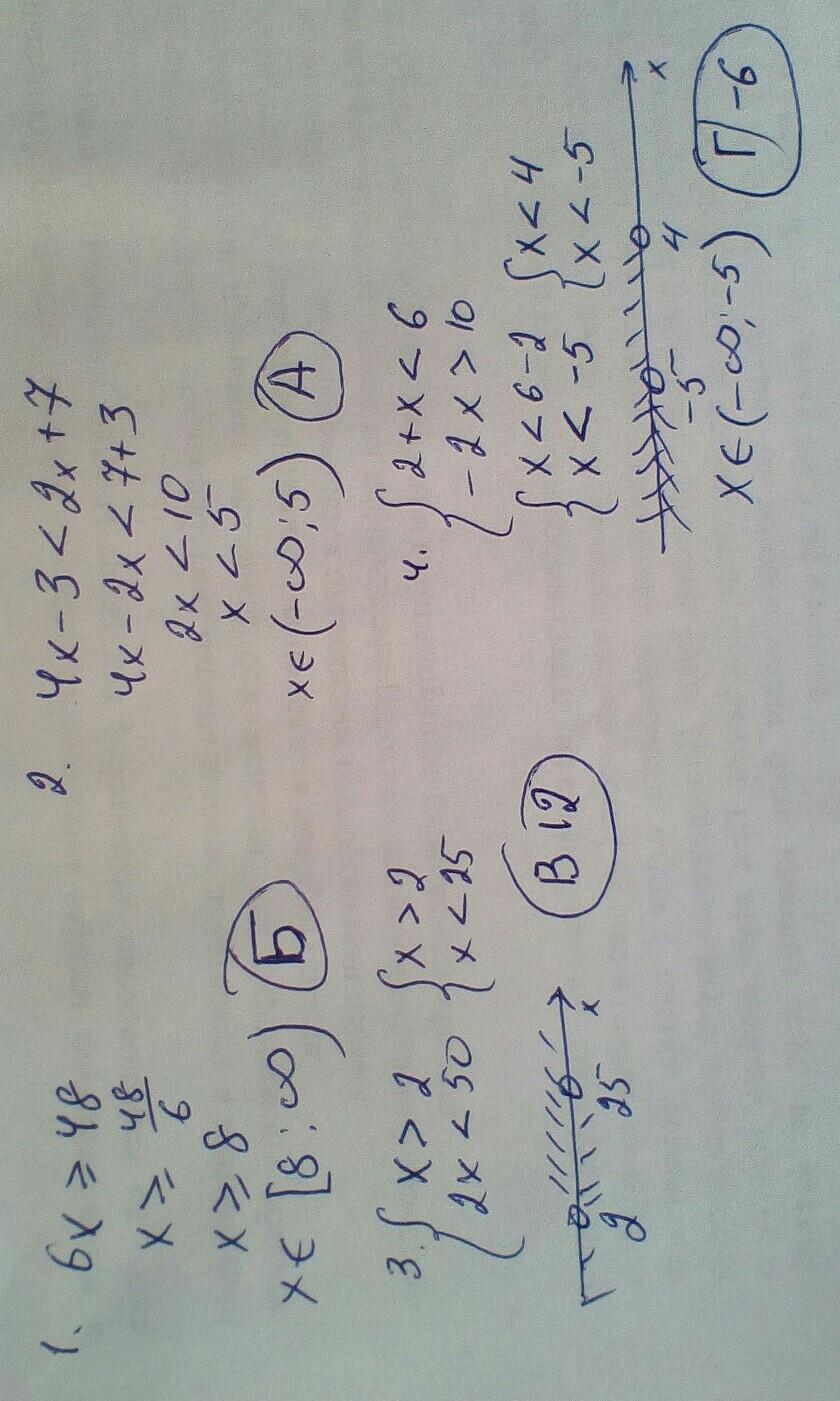 1. 6x ≥ 48
x ≥ 48/6
x ≥ 8
x ∈ [8; ∞) Б
2. 4x - 3 < 2x + 7
4x - 2x < 7 + 3
2x < 10
x < 5
x ∈ (-∞; 5) А
3. { x > 2 { x > 2
2x < 50 x < 25
2 25 x
В 12
4. { 2 + x < 6
-2x > 10
{ x < 6 - 2 { x < 4
x < -5 x < -5
-5 4 x
x ∈ (-∞; -5) Г) -6